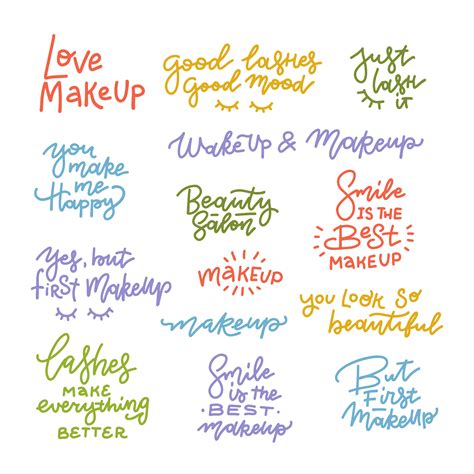 Love
Makeup
Good lashes
Good mood
Just
lash
it
You
make
me
Happy
WakeUp & Makeup
Beauty
Salon
Smile
is the
Best
makeup
Yes, but
first Makeup
makeup
you look so
beautiful
makeup
lashes
make
everything
better
Smile
is the
• BEST •
makeup
But
First
Makeup